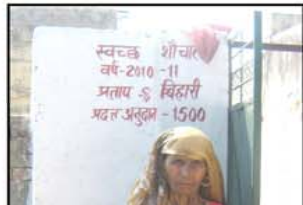 स्वच्छ शौचालय
वर्ष-2010-11
प्रताप S/ बिहारी
प्रदत्त अनुदान - 1500